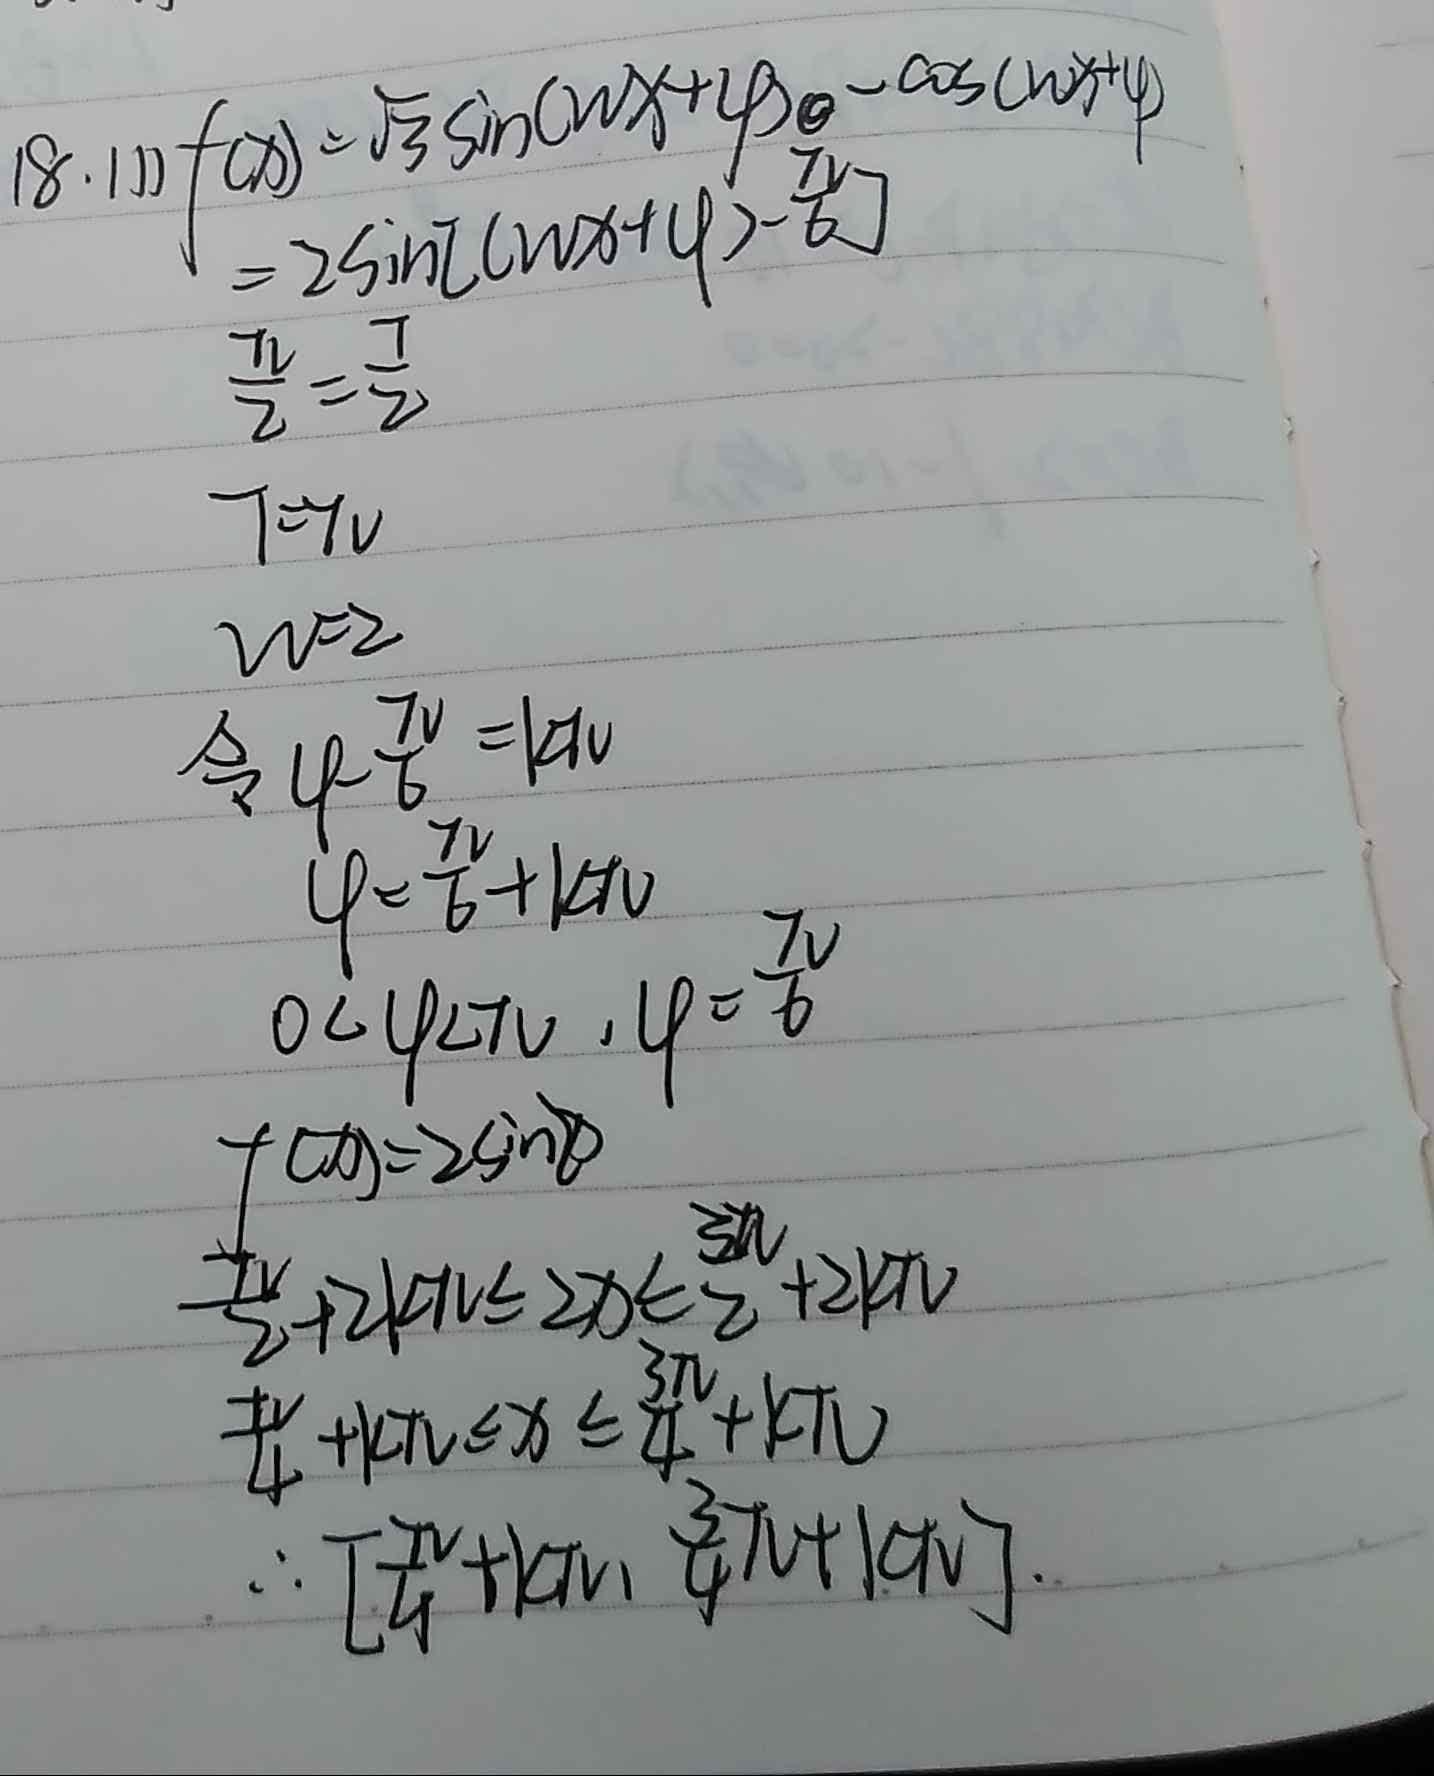 18.(1) f(x)=√3sin(wx+φ)-cos(wx+φ)
=2sin[(wx+φ)-π/6]
π/2=T/2
T=π
w=2
令φ-π/6=kπ
φ=π/6+kπ
0<φ<π,φ=π/6
f(x)=2sin
π/2+2kπ≤2x≤3π/2+2kπ
π/4+kπ≤x≤3π/4+kπ
∴[π/4+kπ,3/4π+kπ].